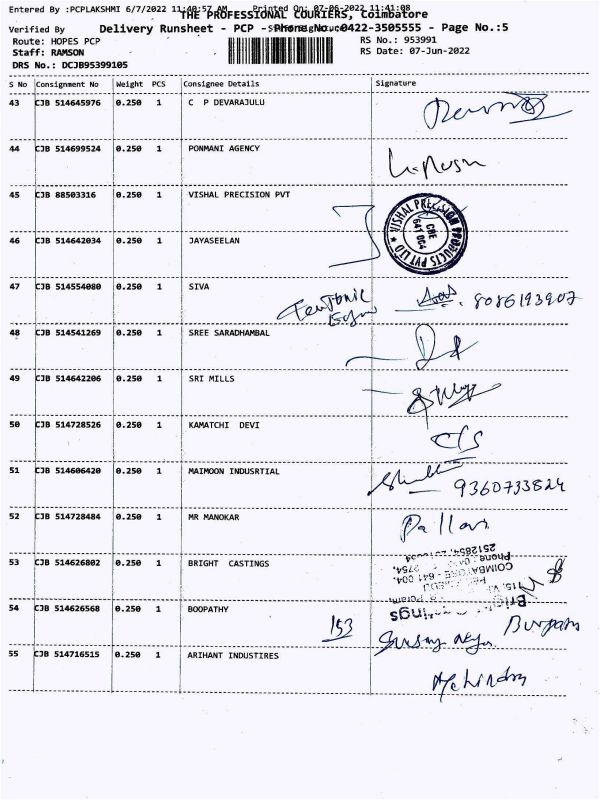 Entered By :PCPLAKSHMI 6/7/2022 11:40:57 AM Printed On: 07-06-2022 11:41:08
THE PROFESSIONAL COURIERS, Coimbatore
Verified By
Delivery Runsheet - PCP - Phone No.:0422-3505555 - Page No.:5
Route: HOPES PCP RS No.: 953991
Staff: RAMSON RS Date: 07-Jun-2022
DRS No.: DCJB95399105
S No Consignment No Weight PCS Consignee Details Signature
43 CJB 514645976 0.250 1 C P DEVARAJULU
44 CJB 514699524 0.250 1 PONMANI AGENCY
45 CJB 88503316 0.250 1 VISHAL PRECISION PVT
VISHAL PRECISION PRODUCTS PVT LTD
CBE
641 004
46 CJB 514642034 0.250 1 JAYASEELAN
47 CJB 514554080 0.250 1 SIVA
8086193907
48 CJB 514541269 0.250 1 SREE SARADHAMBAL
49 CJB 514642206 0.250 1 SRI MILLS
50 CJB 514728526 0.250 1 KAMATCHI DEVI
51 CJB 514606420 0.250 1 MAIMOON INDUSRTIAL
9360733824
52 CJB 514728484 0.250 1 MR MANOKAR
Pallavi
53 CJB 514626802 0.250 1 BRIGHT CASTINGS
54 CJB 514626568 0.250 1 BOOPATHY
153
55 CJB 514716515 0.250 1 ARIHANT INDUSTIRES
Mahindra